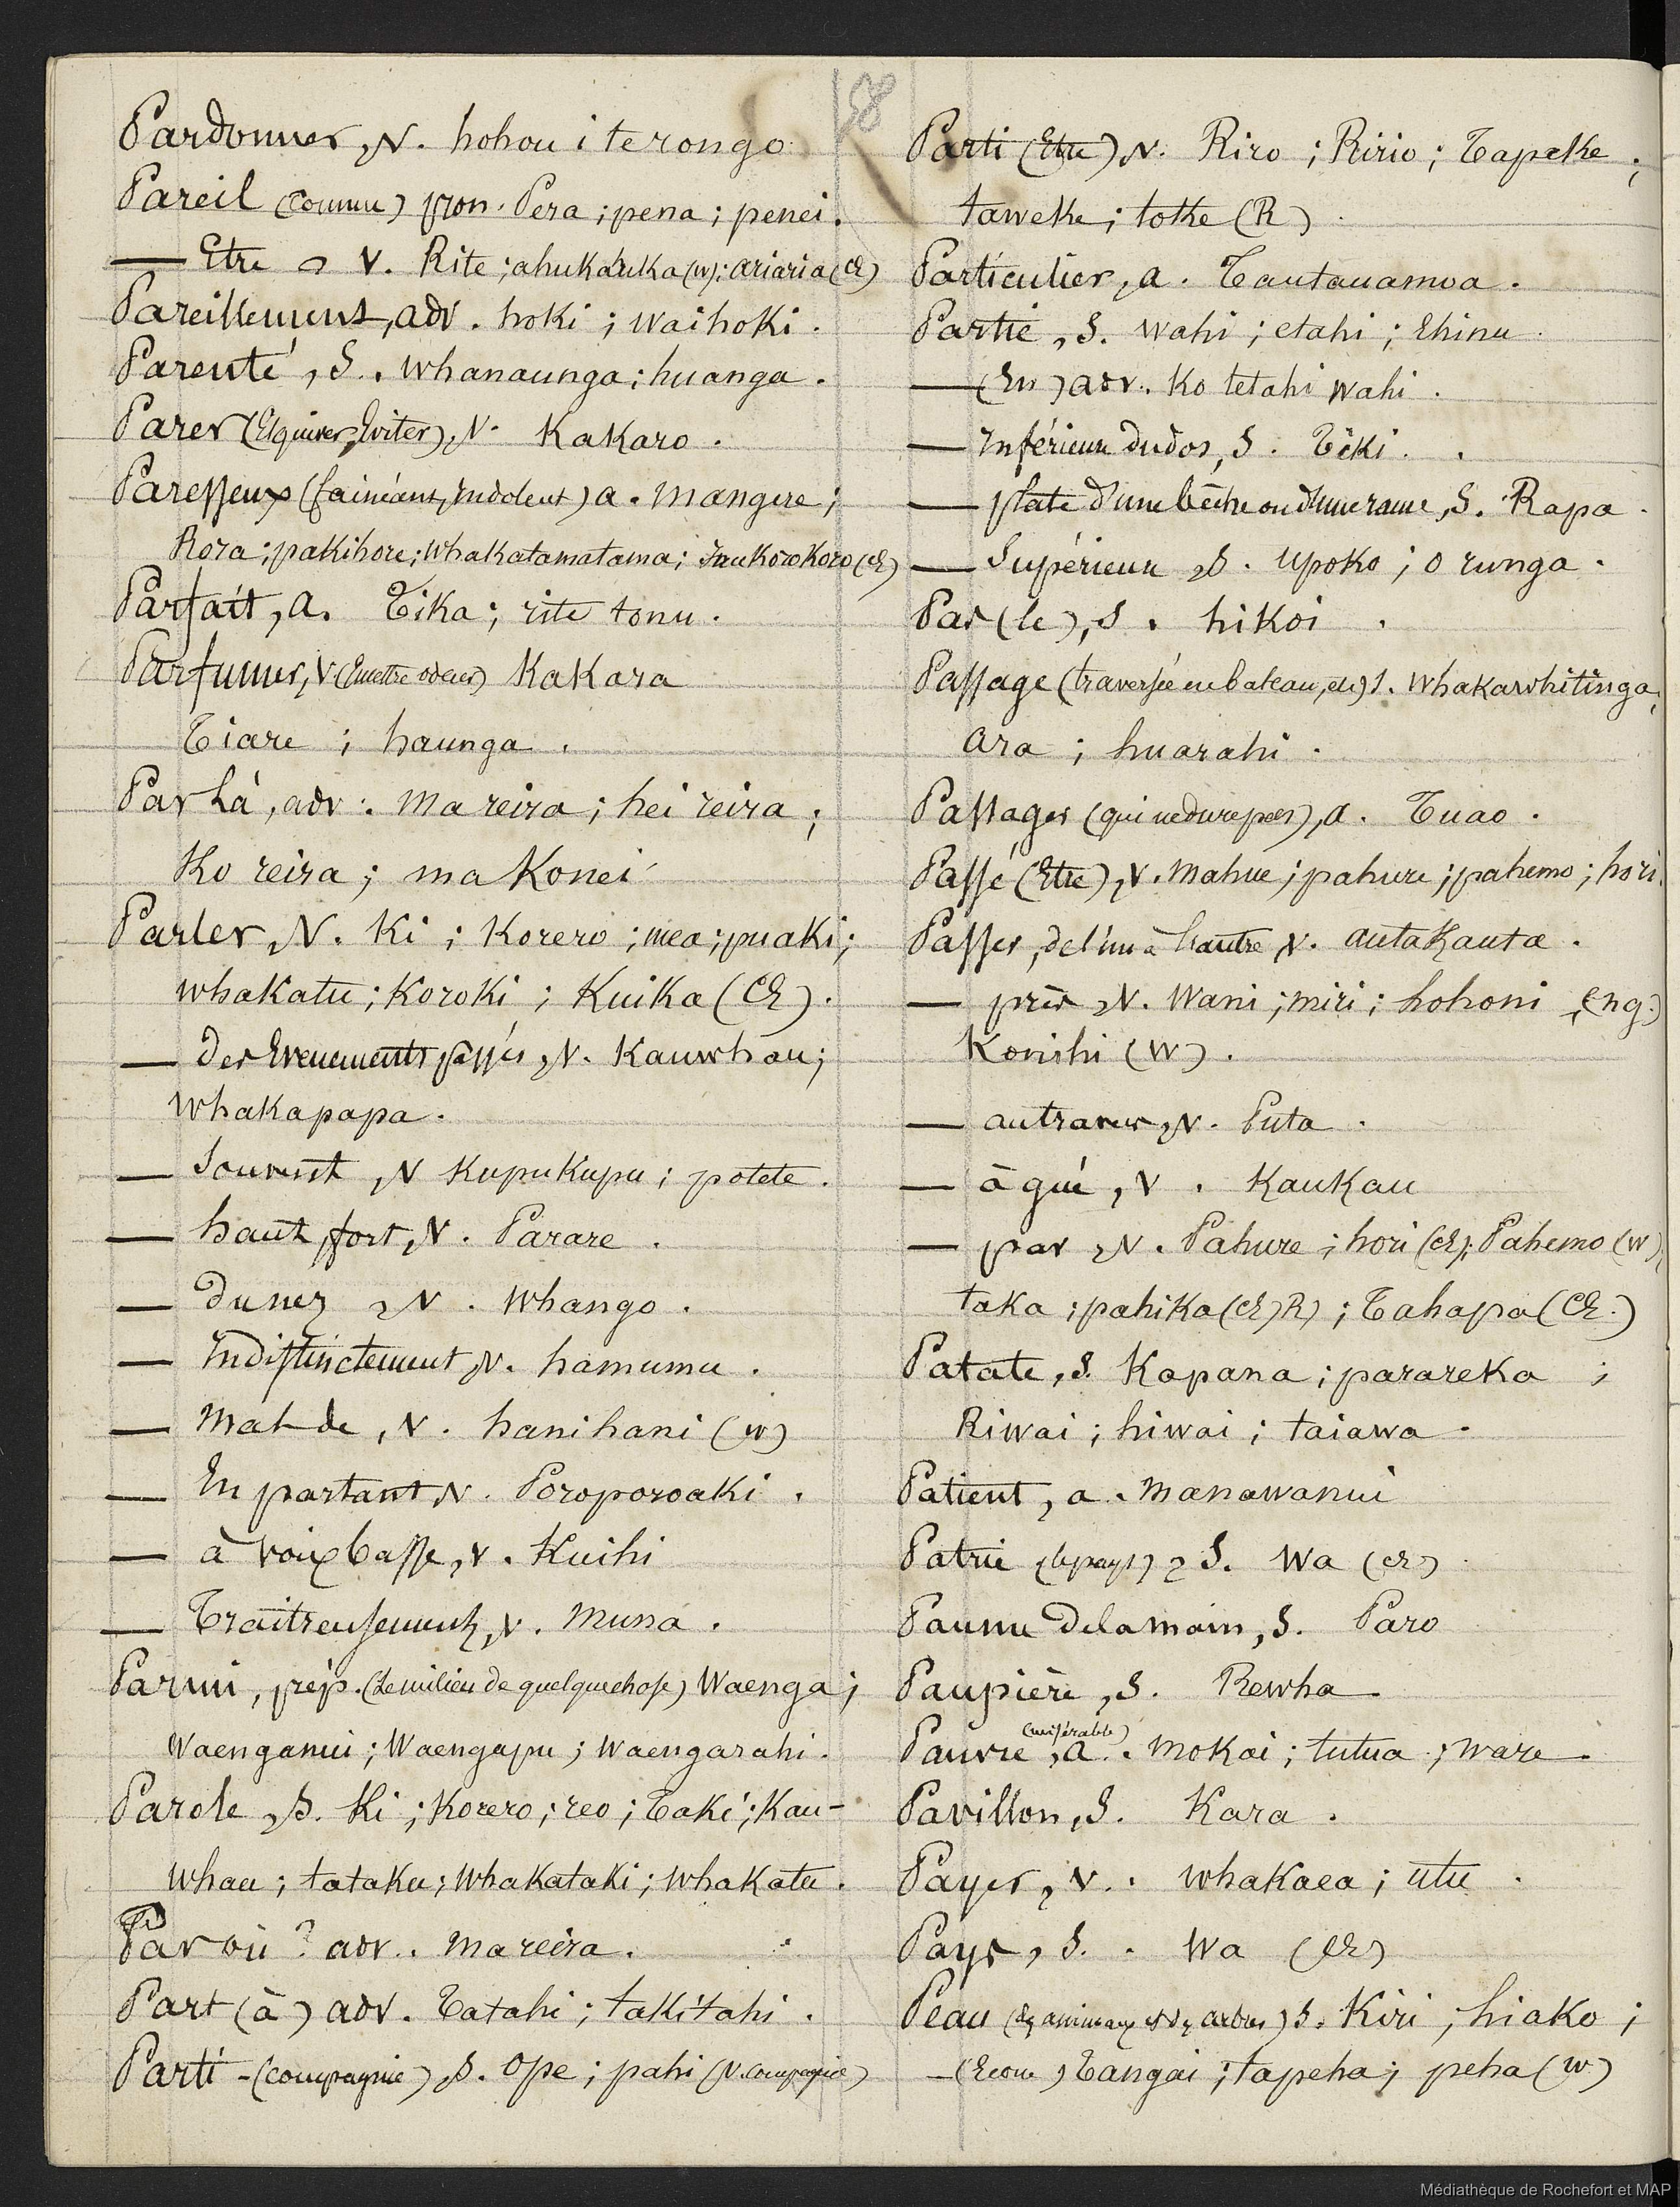 58
Pardonner, v. hohou i te rongo
Pareil (comme) pron. Pera ; pena ; penei.
— Etre v. Rite ; ahukahuka (W) ; ariaria (CE)
Pareillement, adv. hoki ; waihoki.
Parenté, S. whanaunga ; huanga.
Parer (Esquiver, Eviter), v. Kakaro.
Paresseux (fainéant, indolent) a. mangere ;
Rora ; pakihore ; whakatamatama ; (CE)
Parfait, a. Tika ; rite tonu.
Parfumer, v. (Emettre odeur) Kakara
Tiare ; haunga.
Par Là, adv. Ma reira ; hei reira ;
Ko reira ; ma Konei
Parler, v. Ki ; Korero ; mea ; puaki ;
whakatu ; Koroki ; Kuika (CE).
— des Evenements passés, v. Kauwhau ;
whakapapa.
— Souvent, v Kupukupu ; potete.
— haut, fort, v. Parare.
— du nez, v. whango.
— Indistinctement, v. hamumu.
— Mal de, v. hanihani (W)
— En partant, v. Poroporoaki.
— à voix basse, v. Kuihi
— Traitreusement, v. muna.
Parmi, prép. (Le milieu de quelque chose) Waenga ;
Waenganui ; Waengapu ; Waengarahi.
Parole, S. Ki ; Korero ; reo ; Taki ; Kau-
whau ; tataku ; whakataki ; whakatu.
Par où ? adv. Ma reira.
Part (à) adv. Tatahi ; takitahi.
Parti - (compagnie), S. Ope ; pahi (V. compagnie)
Parti (Etre), v. Riro ; Ririo ; Tapeke ;
taweke ; toke (R)
Particulier, a. Tautauamoa.
Partie, S. wahi ; etahi ; Ehinu
— (En) adv. Ko tetahi wahi.
— Inférieure du dos, S. Teki.
— plate d'une bêche ou d'une rame, S. Rapa.
— Supérieure, S. Upoko ; o runga.
Pas (le), S. hikoi.
Passage (traversée en bateau, etc) S. Whakawhitinga,
Ara ; huarahi.
Passager (qui ne dure pas), a. Tuao.
Passé (Etre), v. Mahue ; pahure ; pahemo ; hori.
Passer, de l'un à l'autre, v. autakauta.
— près, v. Wani ; miri ; hohoni, (ng.)
Konihi (W).
— au travers, v. Puta.
— à gué, v. Kaukau
— par, v. Pahure ; hori (CE) ; Pahemo (W),
taka ; pahika (CE) R) ; Tahapa (CE.)
Patate, S. Kapana ; parareka ;
Riwai ; hiwai ; taiawa.
Patient, a. Manawanui
Patrie (le pays), S. Wa (CE)
Paume de la main, S. Paro
Paupière, S. Rewha
Pauvre (misérable), a. Mokai ; tutua ; ware
Pavillon, S. Kara.
Payer, v. whakaea ; utu.
Pays, S. Wa (CE)
Peau (des animaux et des arbres) S. Kiri, hiako ;
– (Ecorce) Tangai ; tapeha ; peha (W)
Médiathèque de Rochefort et MAP